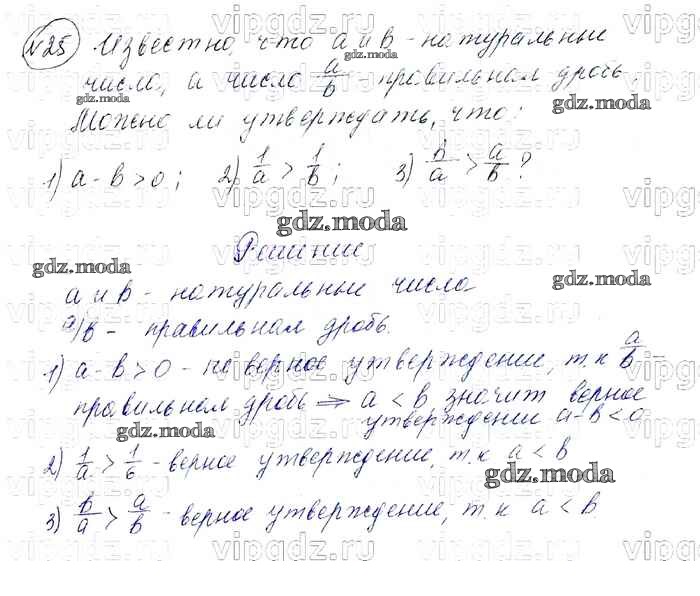 №25 Известно, что a и b - натуральные
число, а число a/b - правильная дробь.
Можно ли утверждать, что:
1) a - b > 0; 2) 1/a > 1/b; 3) b/a > a/b?
Решение
a и b - натуральные число
a/b - правильная дробь.
1) a - b > 0 - не верное утверждение, т.к a/b -
правильная дробь => a < b значит верное
утверждение a - b < 0
2) 1/a > 1/b - верное утверждение, т.к a < b
3) b/a > a/b - верное утверждение, т.к a < b.
gdz.moda
gdz.moda
gdz.moda
gdz.moda
gdz.moda
gdz.moda
gdz.moda
gdz.moda
gdz.moda
vipgdz.ru